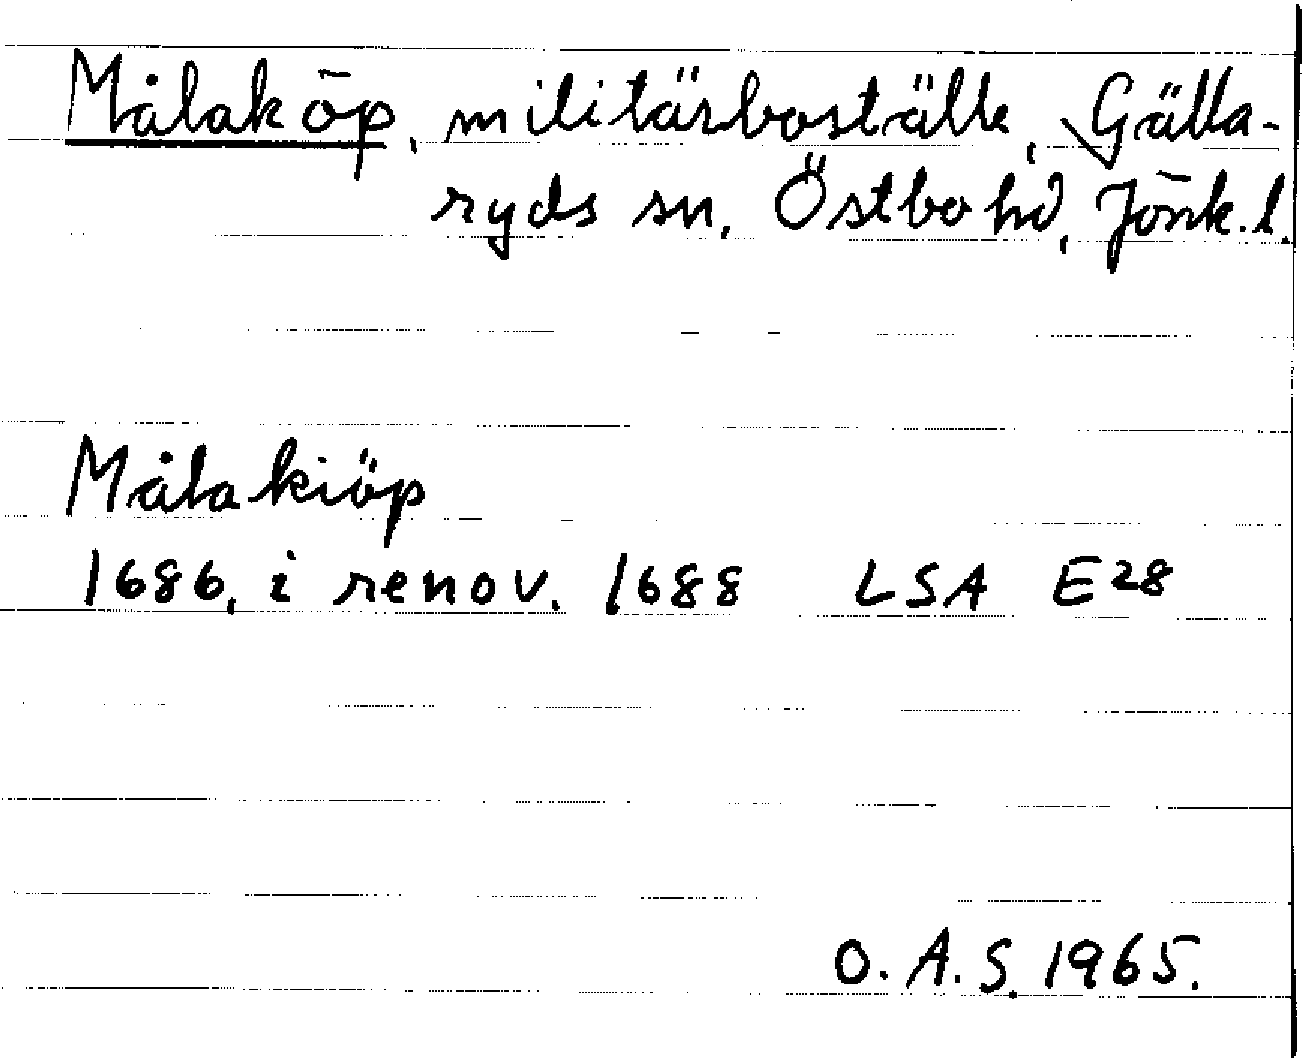 Målaköp, militärboställe, Gälla-
ryds sn, Östbo hd, Jönk. l.
Målakiöp
1686, i renov. 1688 LSA E28
O. A. S. 1965.